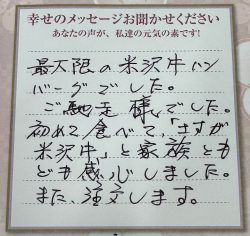 幸せのメッセージお聞かせください
あなたの声が、私達の元気の素です!
最大限の米沢牛ハン
バーグでした。
ご馳走様でした。
初めて食べて、「さすが
米沢牛」と家族とも
ども感心しました。
また、注文します。